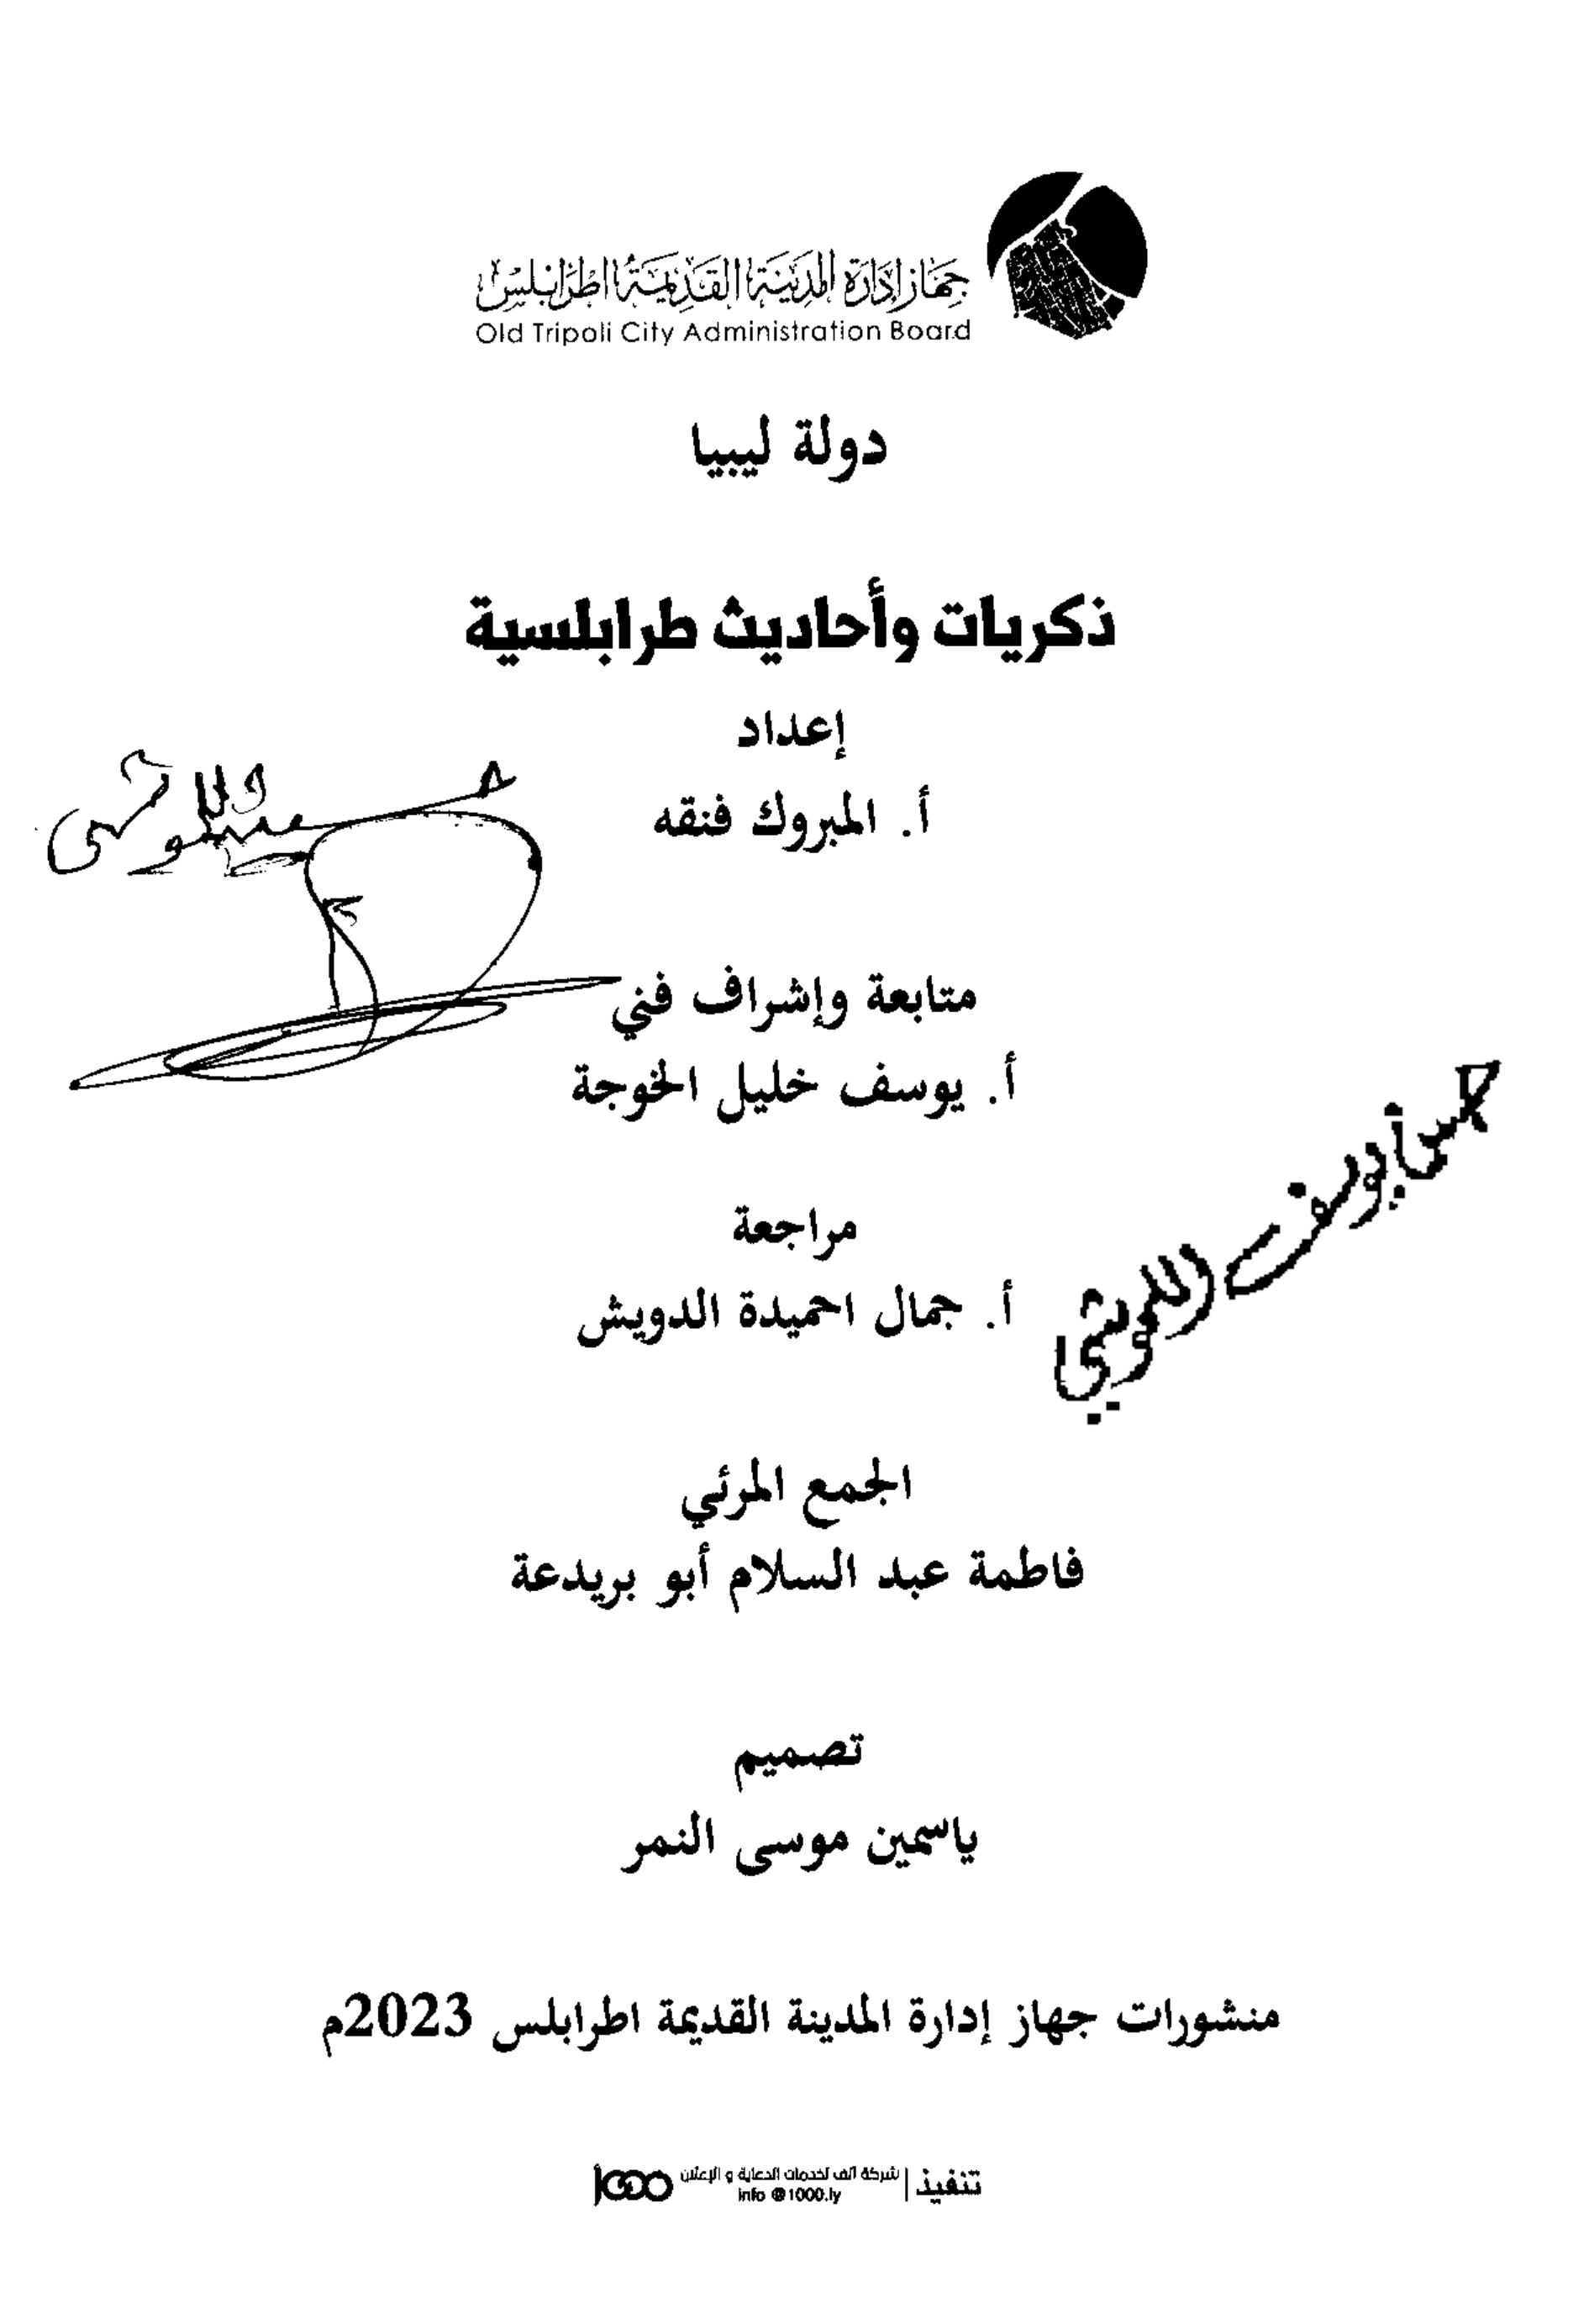 جهاز إدارة المدينة القديمة اطرابلس
Old Tripoli City Administration Board
دولة ليبيا
ذكريات وأحاديث طرابلسية
إعداد
أ. المبروك فنقه
متابعة وإشراف فني
أ. يوسف خليل الخوجة
مراجعة
أ. جمال احميدة الدويش
الجمع المرئي
فاطمة عبد السلام أبو بريدعة
تصميم
ياسمين موسى النمر
منشورات جهاز إدارة المدينة القديمة اطرابلس 2023م
تنفيذ | شركة ألف لخدمات الدعاية و الإعلان
info @1000.ly